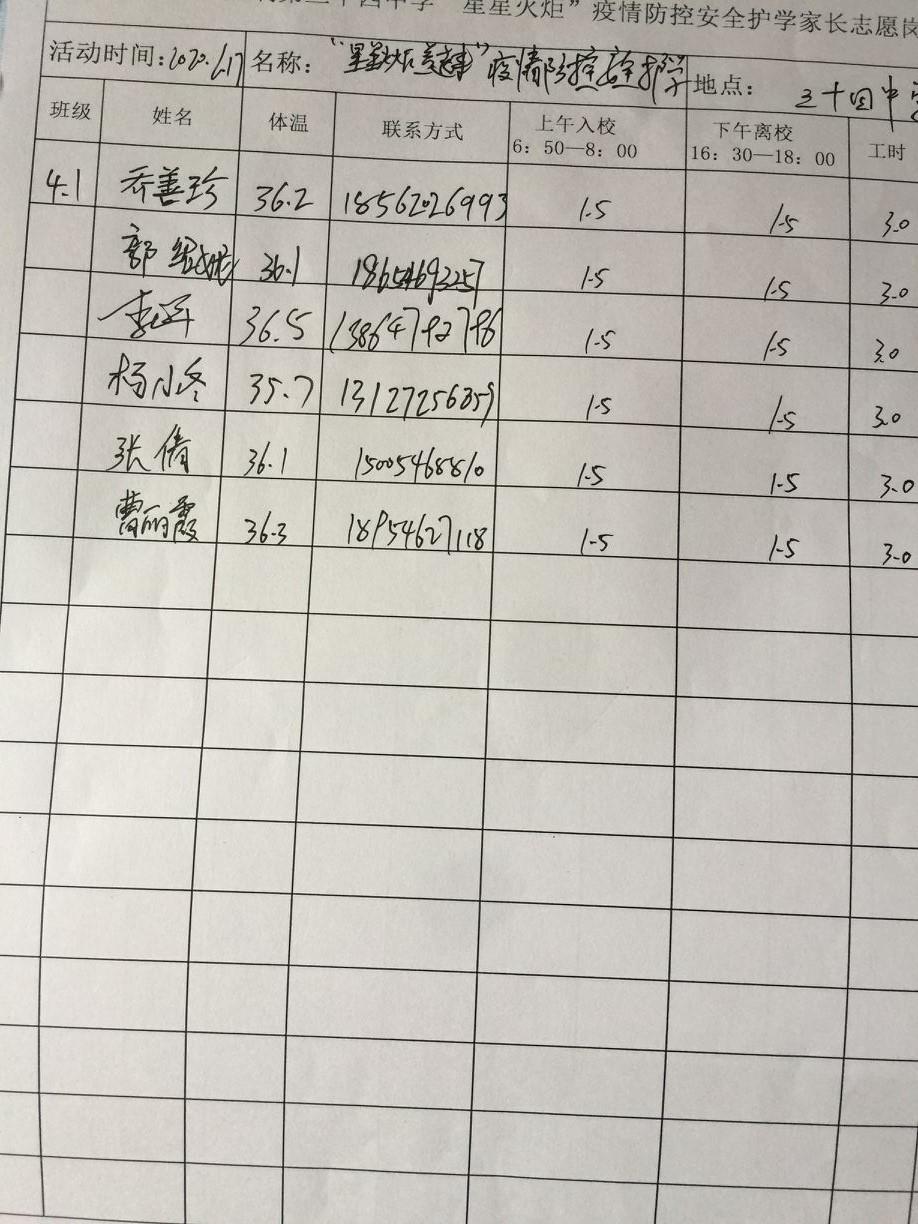 第三十四中学“星星火炬”疫情防控安全护学家长志愿岗
活动时间:2020.6.17 名称: “星星火炬 疫情防控安全护学 地点: 三十四中学
班级 姓名 体温 联系方式 上午入校 6:50—8:00 下午离校 16:30—18:00 工时
4.1 乔善珍 36.2 18562026993 1.5 1.5 3.0
郭 36.1 1.5 1.5 3.0
李 36.5 13864792796 1.5 1.5 3.0
杨小冬 35.7 13127256859 1.5 1.5 3.0
张倩 36.1 15005468810 1.5 1.5 3.0
曹丽霞 36.3 18954627118 1.5 1.5 3.0